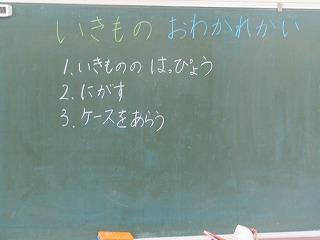 いきもの おわかれかい
1. いきものの はっぴょう
2. にがす
3. ケースをあらう